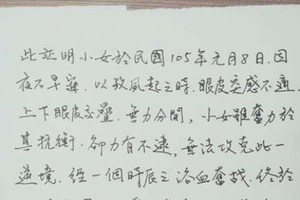 此証明小女於民國105年元月8日.因
夜不早寐.以致風起之時.眼皮交感不適.
上下眼皮交疊.無力分開,小女雖奮力於
其抗衡.卻力有不逮,無法攻克此一
逆境.經一個時辰之浴血奮戰.終於